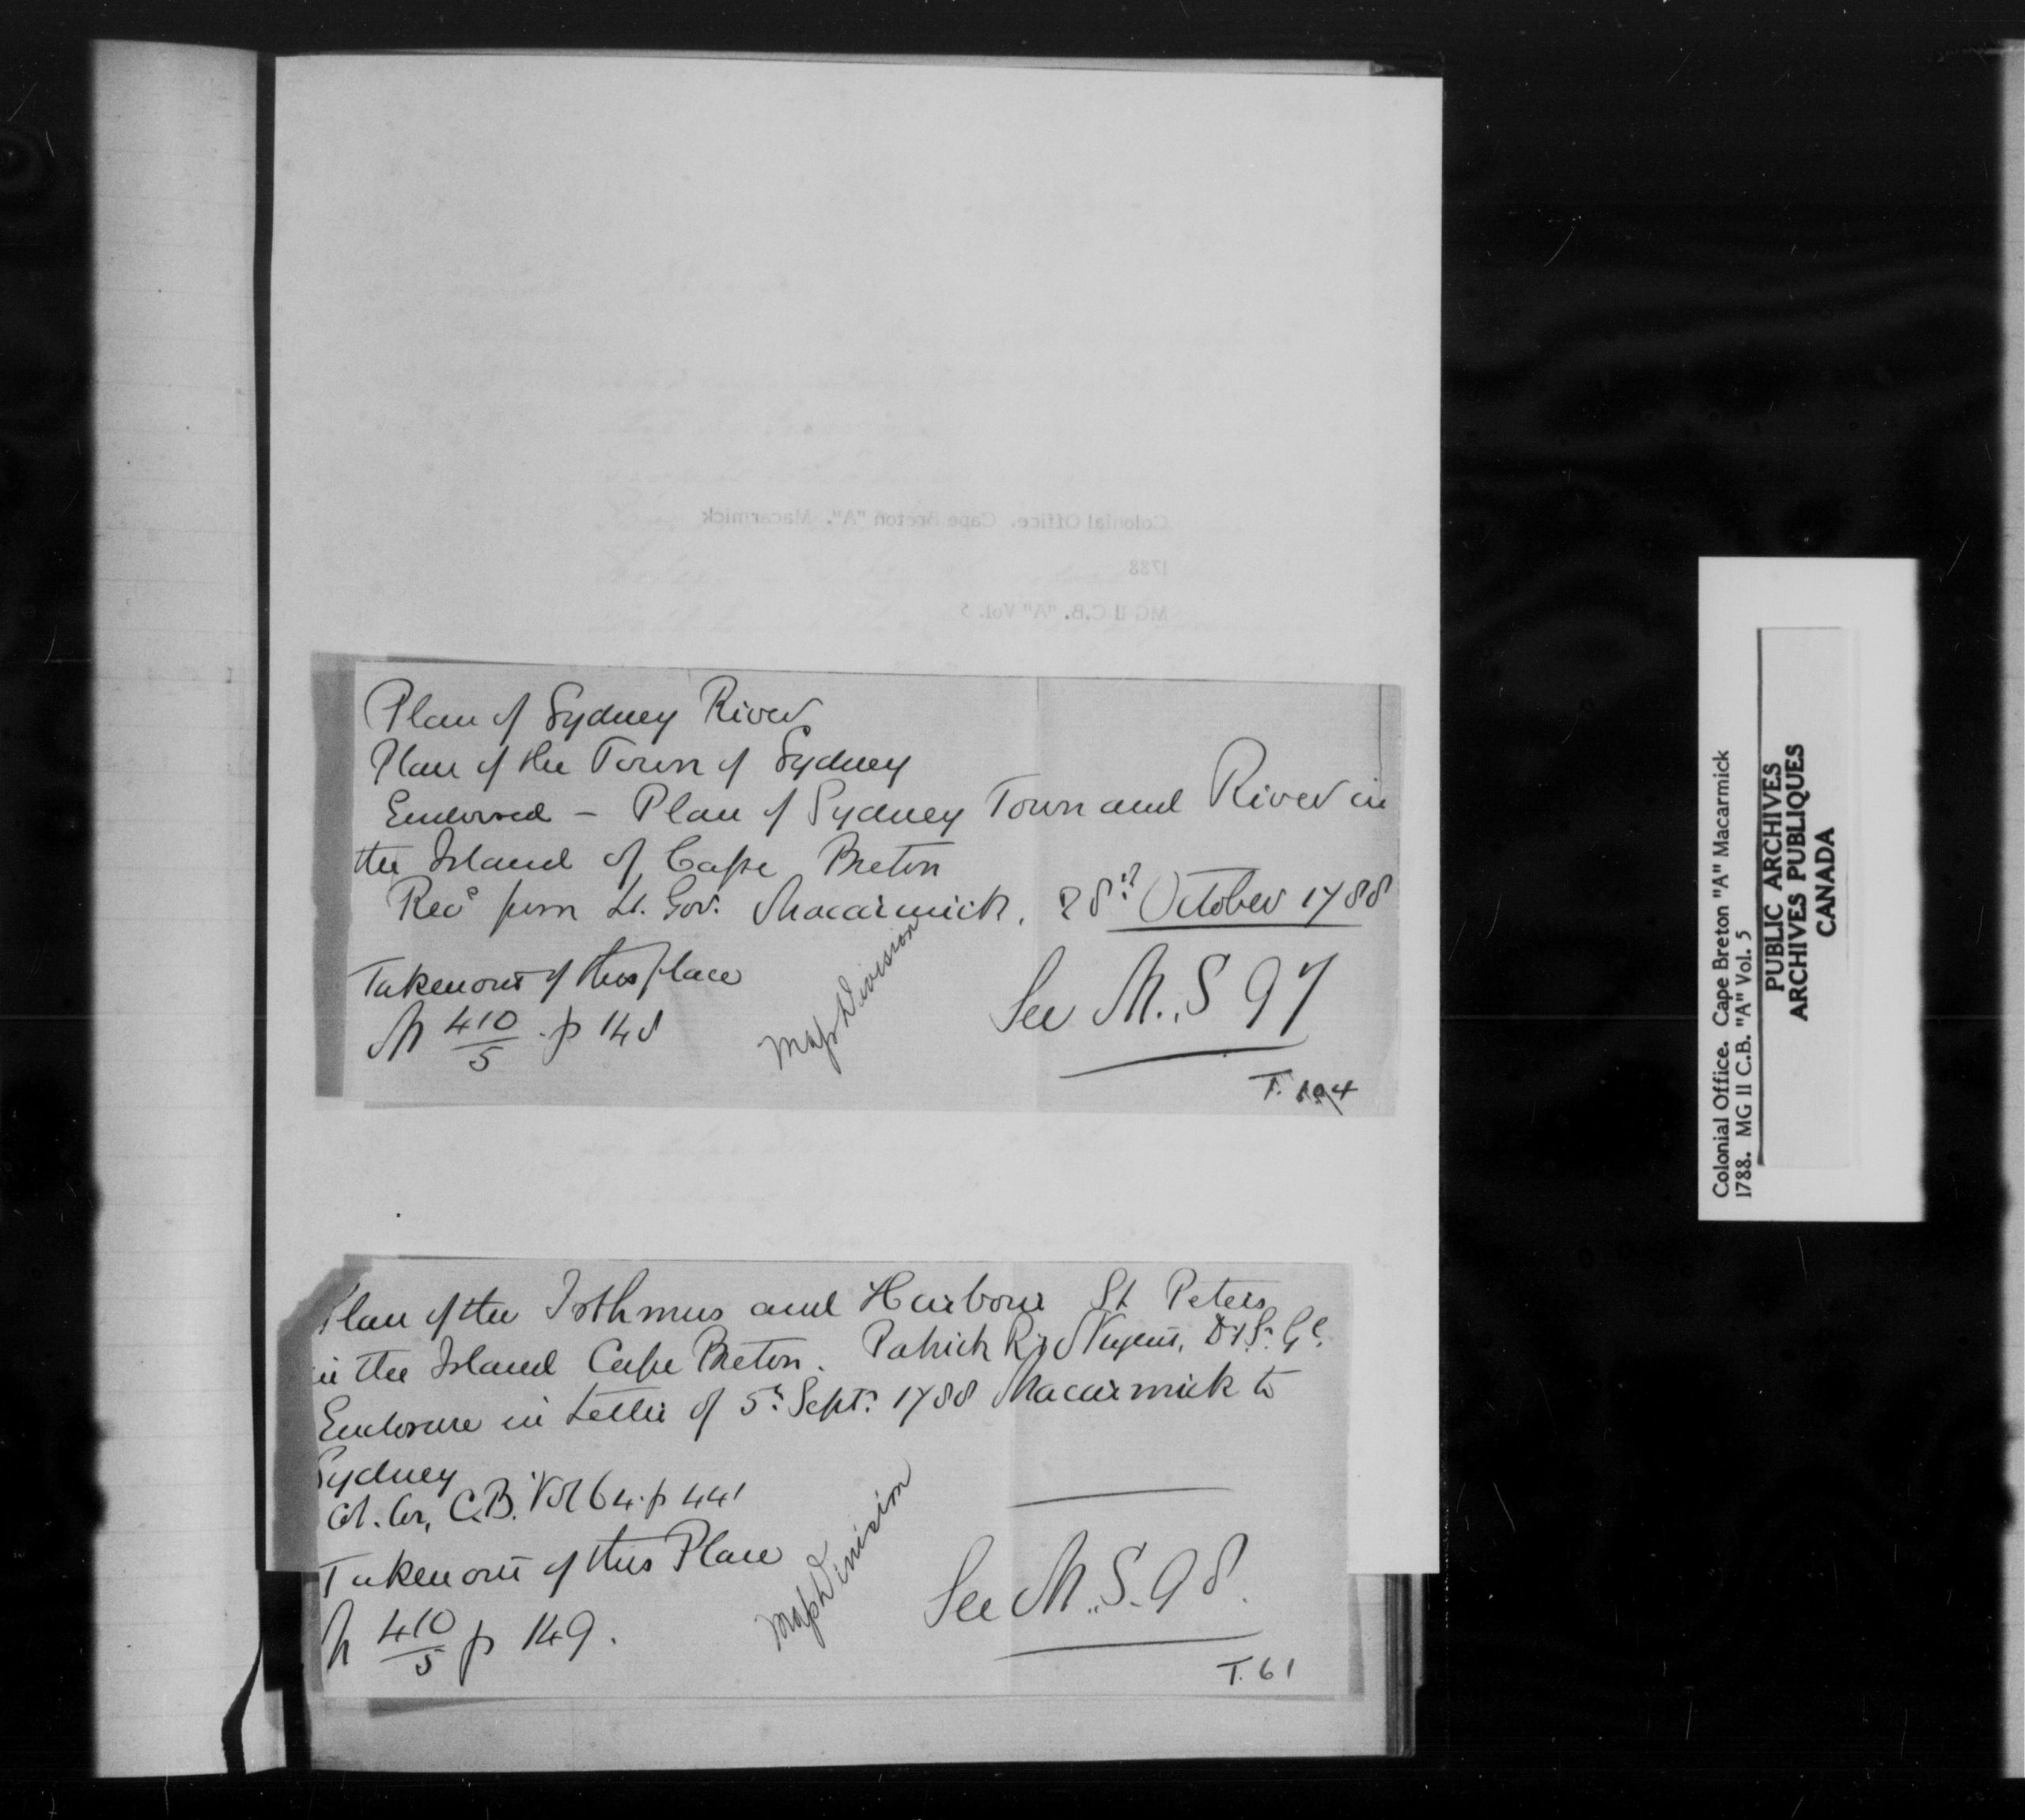 Plan of Sydney River
Plan of the Town of Sydney
Endorsed – Plan of Sydney Town and River in
the Island of Cape Breton
Recd from Lt. Gov. Macarmick, 28th October 1788
Taken out of this place
M 410/5 . p 148
Map Division
See M.S 97
T. 104
Plan of the Isthmus and Harbour St Peters
in the Island Cape Breton. Patrick Rd Nugent, Dy S. Gl.
Enclosure in Letter of 5th Sept. 1788 Macarmick to
Sydney
Col. Cor, C.B. Vol 64. p 441
Taken out of this Place
M 410/5 p 149.
Map Division
See M.S. 98.
T. 61
Colonial Office. Cape Breton "A" Macarmick
1788. MG 11 C.B. "A" Vol. 5
PUBLIC ARCHIVES
ARCHIVES PUBLIQUES
CANADA
Colonial Office. Cape Breton "A". Macarmick
1788
MG 11 C.B. "A" Vol. 5